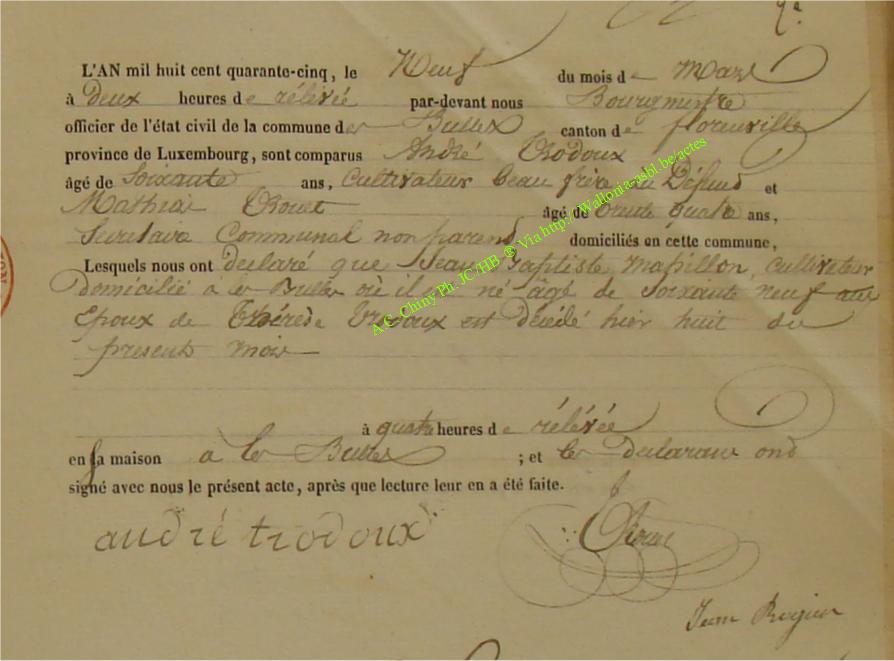 L'AN mil huit cent quarante-cinq, le Neuf du mois de Mars
à deux heures de rélévée par-devant nous Bourgmestre
officier de l'état civil de la commune des Bulles canton de florenville
province de Luxembourg, sont comparus André Trodoux
âgé de Soixante ans, Cultivateur beau frère du Défund et
Mathias âgé de trente quatre ans,
Communal non parend domiciliés en cette commune,
Lesquels nous ont declaré que Jean Baptiste Massillon, cultivateur
domicilié à les Bulles où il est né agé de Soixante neuf ans
Epoux de Thérèse Trodoux est décédé hier huit du
present mois
à quatre heures de rélévée
en sa maison à les Bulles ; et les declarans ond
signé avec nous le présent acte, après que lecture leur en a été faite.
andré trodoux
Jean
A.C. Chiny Ph. JC/HB ® Via http://Wallonia-asbl.be/actes